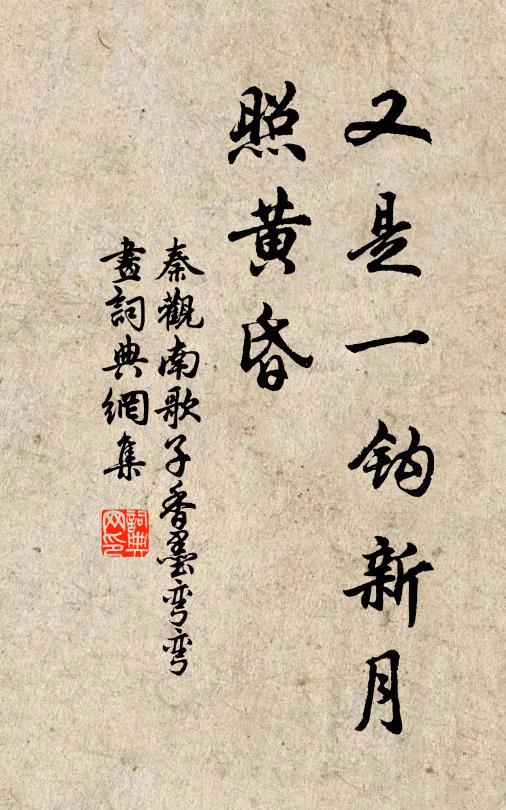 又是一鈎新月
照黃昏
秦觀南歌子香墨弯弯
畫詞典網集
詞典
网印